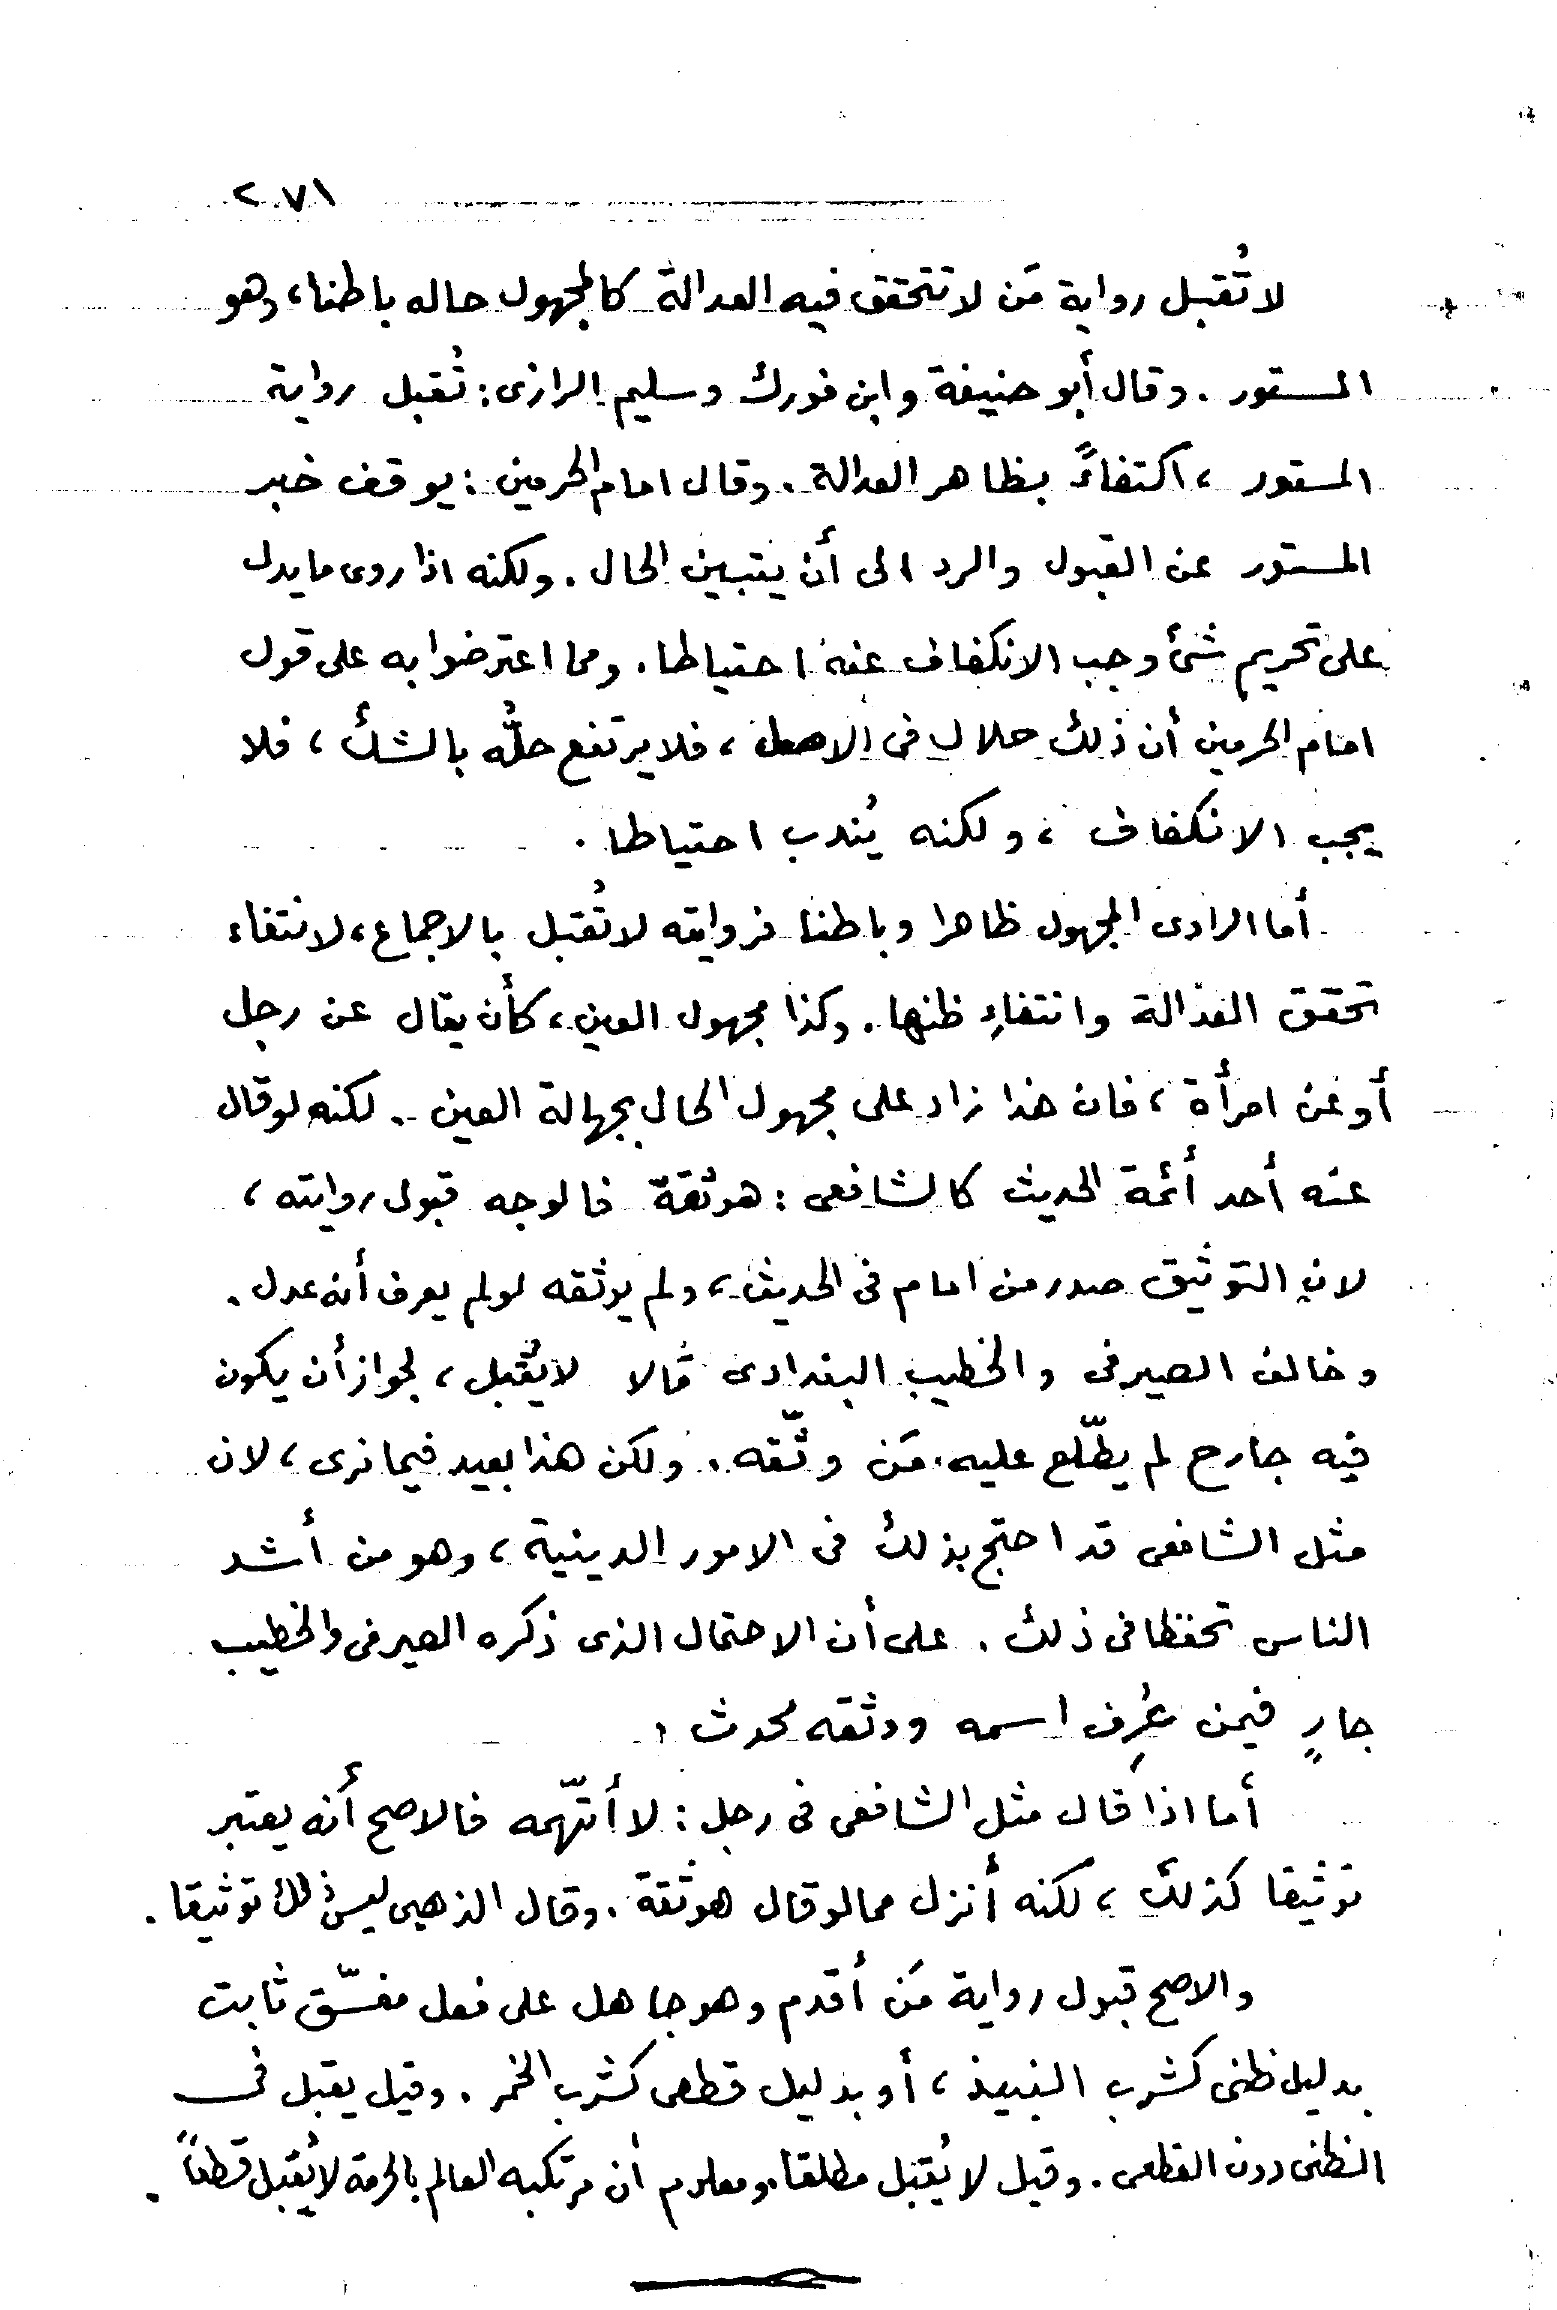 ٢٧١
لا تُقبل رواية مَن لا تتحقق فيه العدالة كالمجهول حاله باطنا، وهو
المستور . وقال أبو حنيفة وابن فورك وسليم الرازى : تُقبل رواية
المستور ، اكتفاءً بظاهر العدالة . وقال امام الحرمين : يوقف خبر
المستور عن القبول والرد الى أن يتبين الحال . ولكنه اذا روى ما يدل
على تحريم شئ وجب الانكفاف عنه احتياطا . ومما اعترضوا به على قول
امام الحرمين أن ذلك حلال فى الاصل ، فلا يرتفع حلُّه بالشك ، فلا
يجب الانكفاف ، ولكنه يُندب احتياطا .
أما الراوى المجهول ظاهرا وباطنا فروايته لا تُقبل بالاجماع ، لانتفاء
تحقق العدالة وانتفاءِ ظنها . وكذا مجهول العين ، كأن يقال عن رجل
أو عن امرأة ، فان هذا زاد على مجهول الحال بجهالة العين . لكنه لو قال
عنه أحد أئمة الحديث كالشافعى : هو ثقة فالوجه قبول روايته ،
لان التوثيق صدر من امام فى الحديث ، ولم يوثقه لو لم يعرف أنه عدل .
وخالف الصيرفى والخطيب البغدادى قالا لا يُقبل ، لجواز أن يكون
فيه جارح لم يطّلع عليه مَن وثّقه . ولكن هذا بعيد فيما نرى ، لان
مثل الشافعى قد احتج بذلك فى الامور الدينية ، وهو من أشد
الناس تحفظا فى ذلك . على أن الاحتمال الذى ذكره الصيرفى والخطيب
جارٍ فيمن عُرِف اسمه ووثقه محدث .
أما اذا قال مثل الشافعى فى رجل : لا أتّهمه فالاصح أنه يعتبر
توثيقا كذلك ، لكنه أنزل مما لو قال هو ثقة . وقال الذهبى ليس ذلك توثيقا .
والاصح قبول رواية مَن أقدم وهو جاهل على فعل مفسّق ثابت
بدليل ظنى كشرب النبيذ ، أو بدليل قطعى كشرب الخمر . وقيل يقبل فى
الظنى دون القطعى . وقيل لا يُقبل مطلقا. ومعلوم أن مرتكبه العالم بالحرمة لا يُقبل قطعاً .